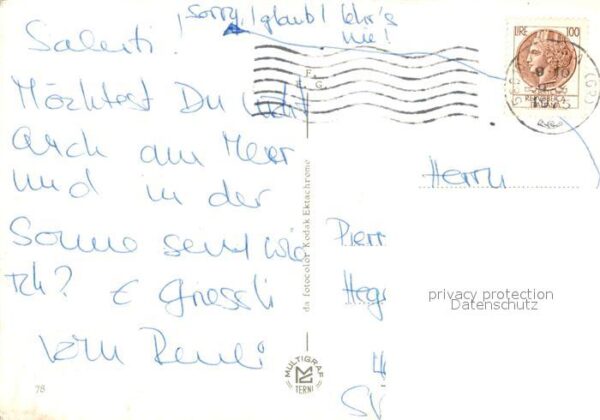 Sorry, I glaub I lehr's
nie!
Saluti!
Möchtest Du nicht
auch am Meer
und in der
Sonne sein wie
ich? E Griessli
vom Reneli
LIRE 100
F.
G.
Herrn
Pierr
Heg
da fotocolor Kodak Ektachrome
MULTIGRAF
TERNI
78
privacy protection
Datenschutz